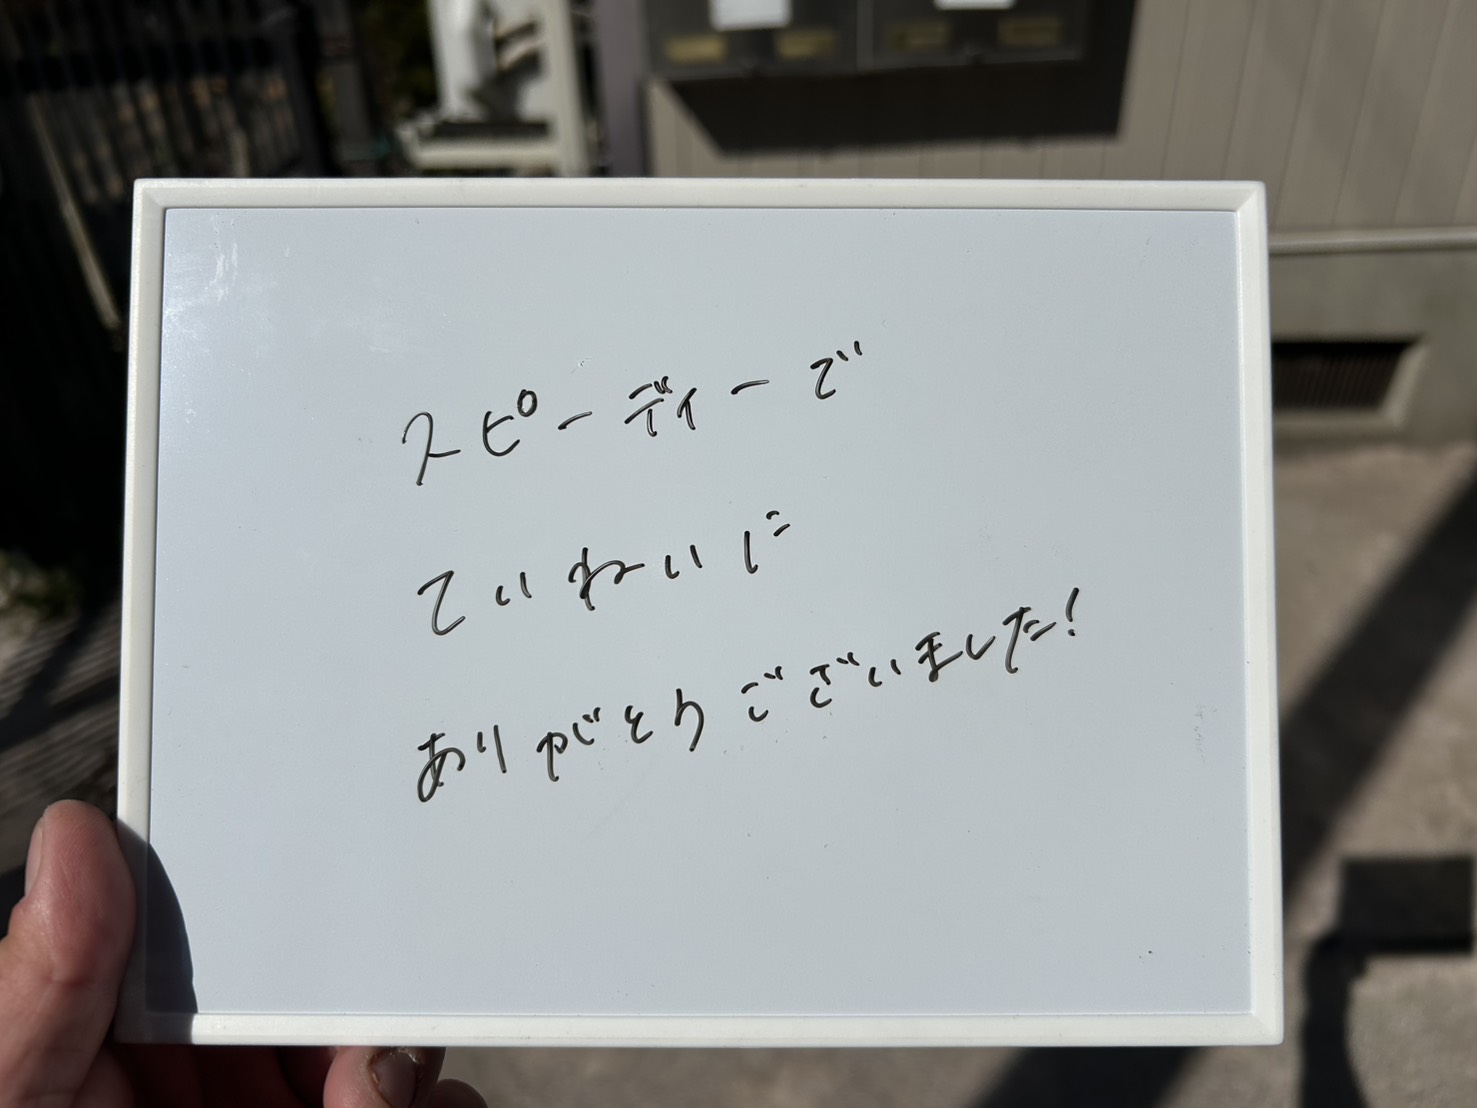 スピーディーで
ていねいに
ありがとうございました!